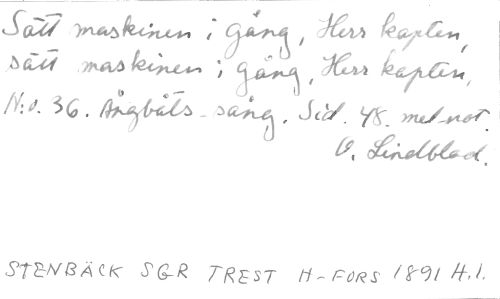 Sätt maskinen i gång, Herr kapten,
sätt maskinen i gång, Herr kapten,
N:o. 36. Ångbåts-sång. Sid. 48. mel-not.
O. Lindblad.
STENBÄCK SGR TREST H-FORS 1891 H.1.